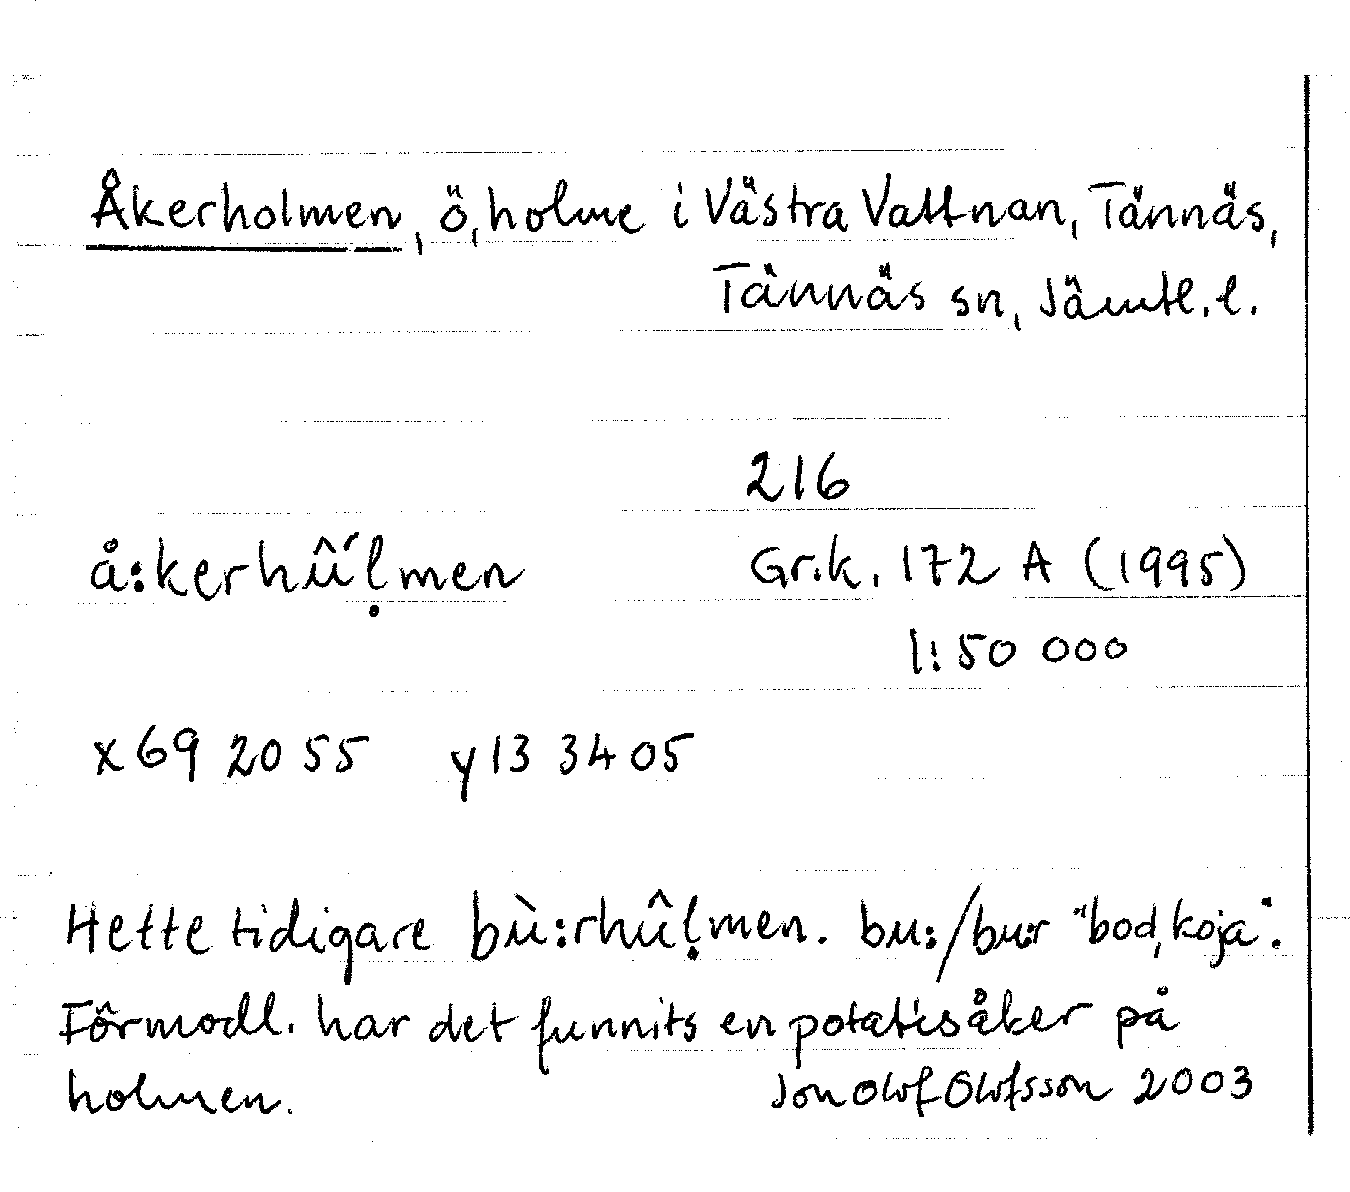 Åkerholmen, ö, holme i Västra Vattnan, Tännäs,
Tännäs sn, Jämtl. l.
216
å:kerhû´ḷmen Gr.k. 172 A (1995)
1:50 000
x 69 20 55 y 13 34 05
Hette tidigare bù:rhûḷmen. bu:/bu:r "bod, koja".
Förmodl. har det funnits en potatisåker på
holmen. Jon Olof Olofsson 2003